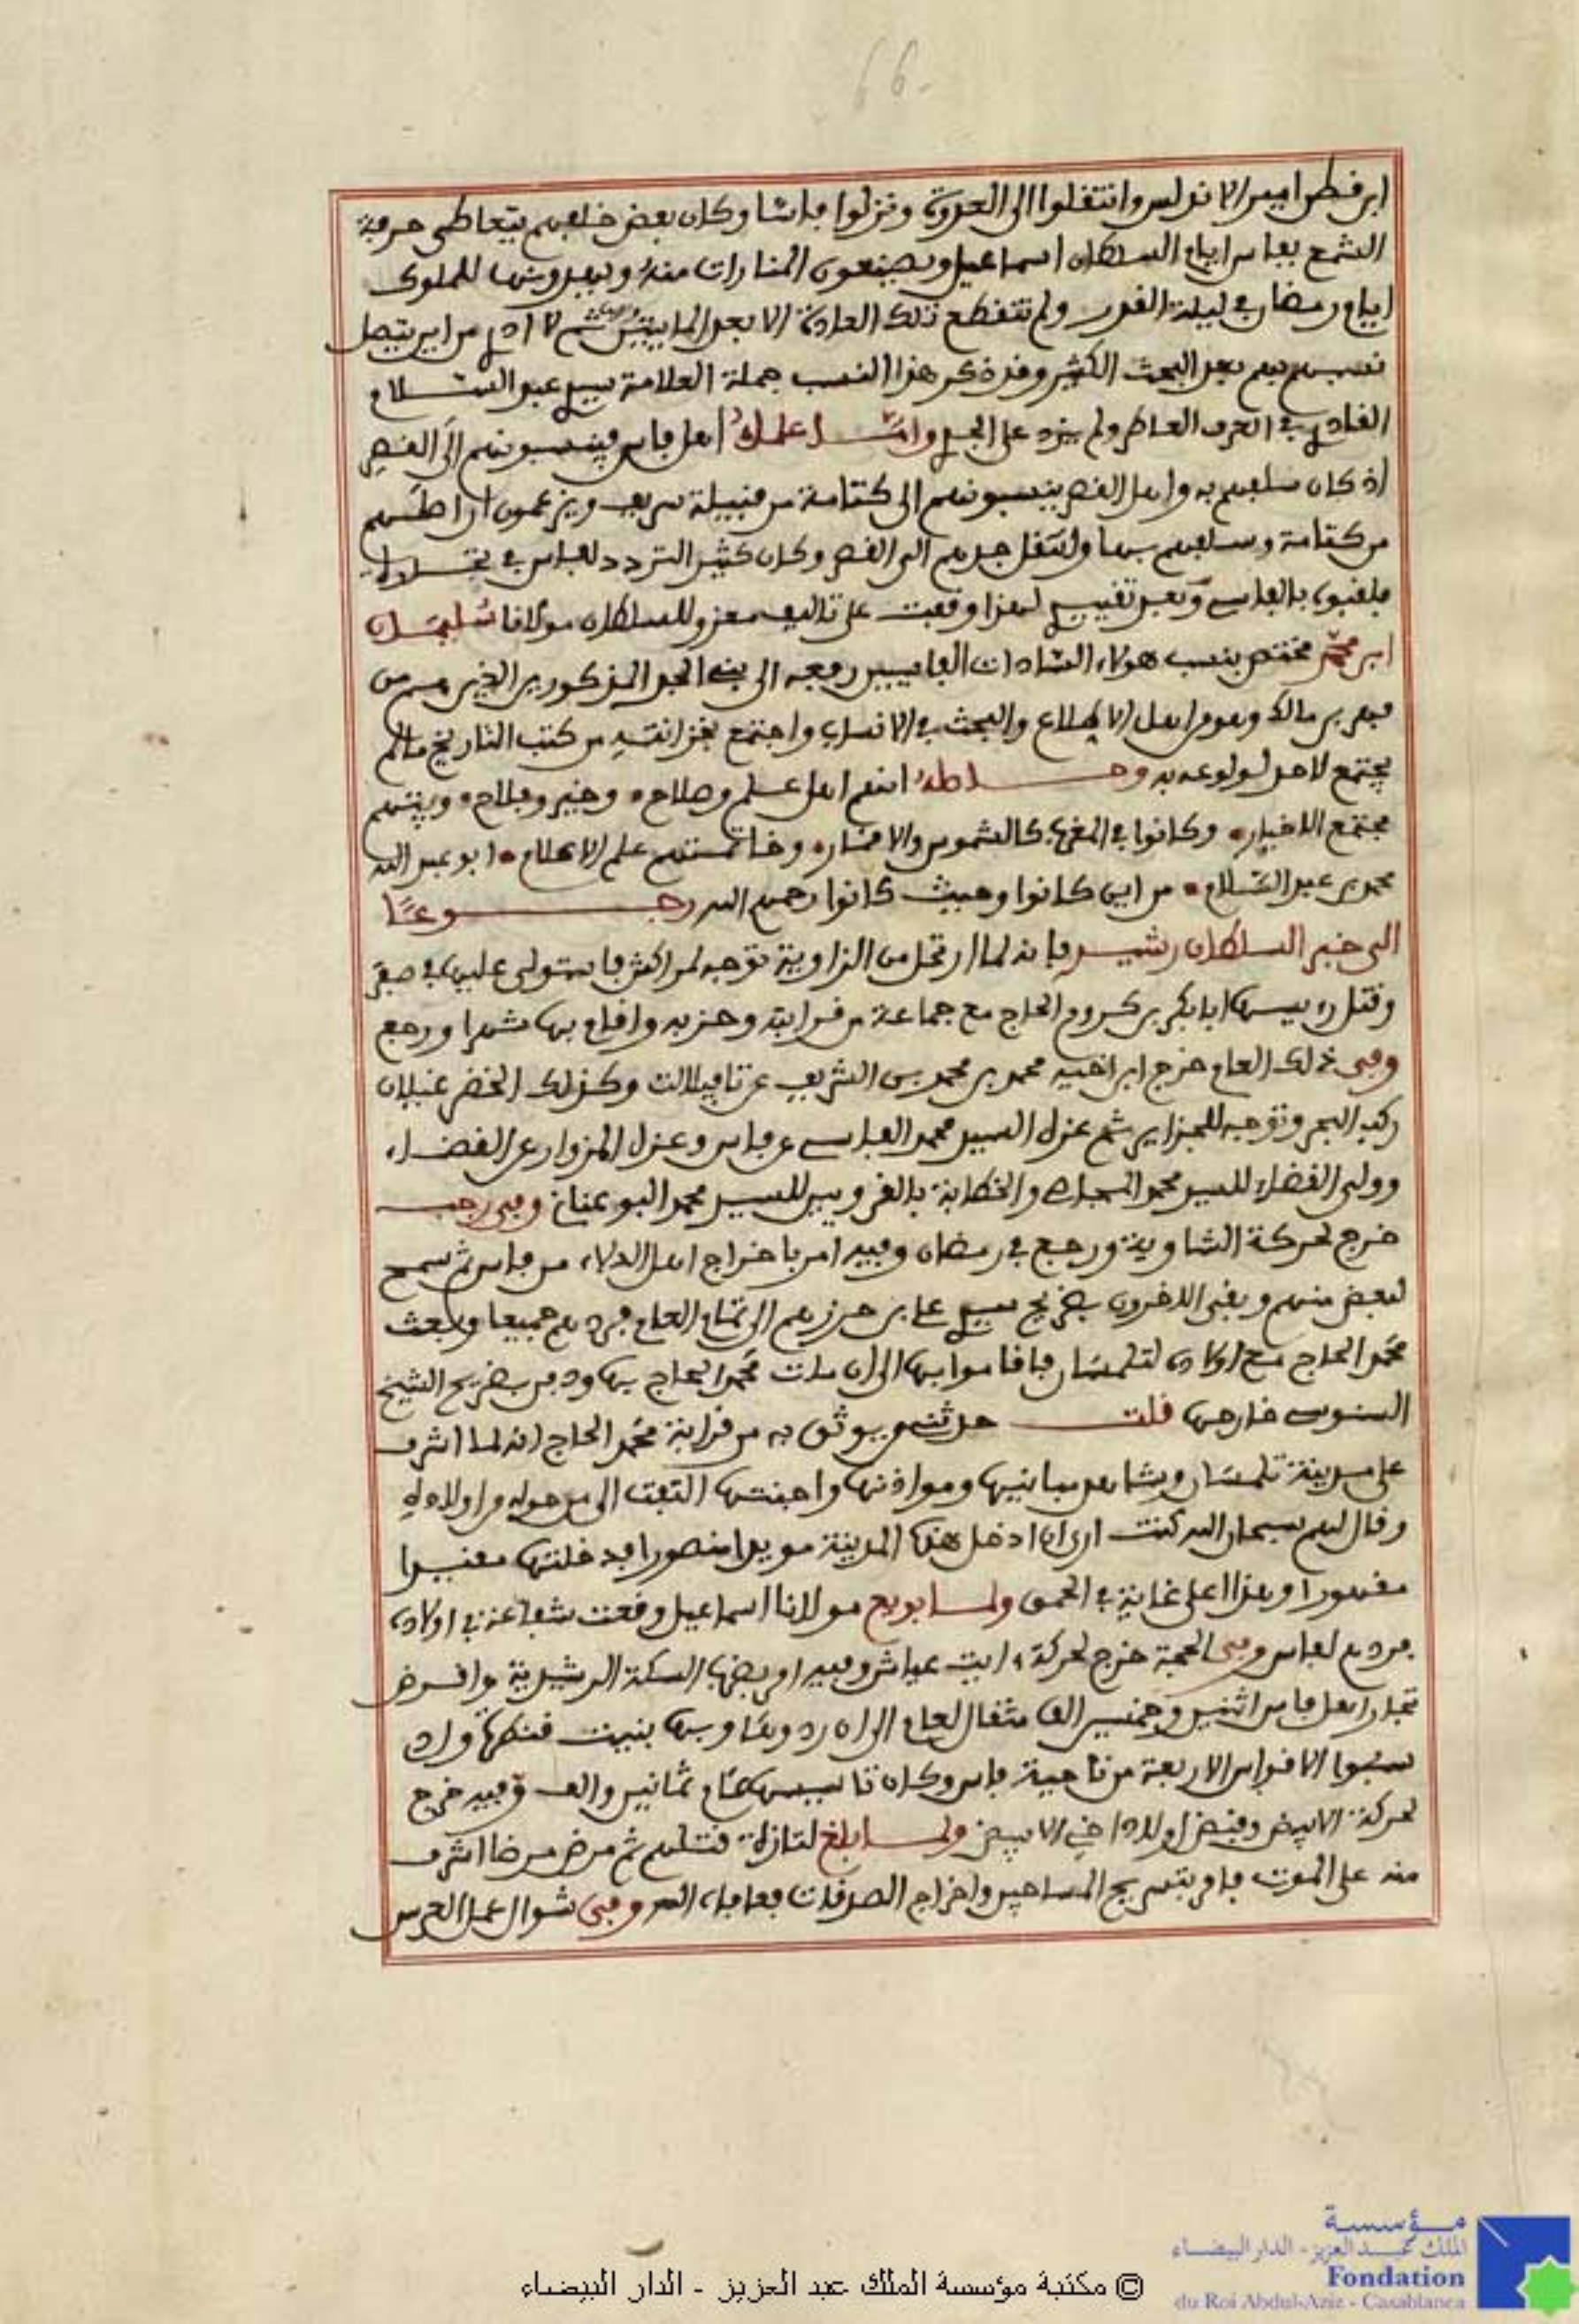 66
ابن قطن امير الاندلس وانتقلوا الى العدوة ونزلوا بفاس وكان بعض خلفهم يتعاطى حرفة
الشمع بفاس ايام السلطان اسماعيل ويصنعون المنارات منه ويهدونها للملوك
ايام رمضان في ليلة القدر ولم تنقطع تلك العادة الا بعد المايتين ثم لا ادري من اين يتصل
نسبهم بهم بعد البحث الكثير وقد ذكر هذا النسب جملة العلامة سيدي عبد السلام
القادري في العرف العاطر ولم يزد على الجد واما علماء اهل فاس فينسبونهم الى القصر
اذ كان سلفهم به واهل القصر ينسبونهم الى كتامة من قبيلة سريف ويزعمون ان اصلهم
من كتامة وسلفهم بها وانتقل جدهم الى القصر وكان كثير التردد لفاس في تجارة
فلقبوه بالفاسي وبعد تقييدي لهذا وقعت على تاليف معزو للسلطان مولانا سليمان
ابن محمد مختص بنسب هولاء السادات الفاسيين رفعه الى بني الجد المذكورين الذين هم من
فهر بن مالك وهو من اهل الاطلاع والبحث في الانساب واجتمع بخزانته من كتب التاريخ ما لم
يجتمع لاحد لولوعه به وحاصله انهم اهل علم وصلاح وخير وفلاح وبيتهم
مجتمع الاخيار وكانوا في المغرب كالشموس والاقمار وخاتمتهم علم الاعلام ابو عبد الله
محمد بن عبد السلام من اين كانوا وحيث كانوا رحمهم الله رجوعا
الى خبر السلطان رشيد فانه لما ارتحل من الزاوية توجه لمراكش فاستولى عليها في صفر
وقتل رييسها ابا بكر بن كروم الحاج مع جماعة من قرابته وحزبه واقام بها شهرا ورجع
وفي ذلك العام خرج ابن اخيه محمد بن محمد بن الشريف عن تافيلالت وكذلك الخضر غيلان
ركب البحر وتوجه للجزاير ثم عزل السيد محمد الفاسي عن فاس وعزل المزوار عن القضاء
وولى القضاء للسيد محمد المجاصي والخطابة بالقرويين للسيد محمد البوعناني وفي رجب
خرج لحركة الشاوية ورجع في رمضان وفيه امر باخراج اهل الدلاء من فاس ثم سمح
لبعض منهم وبقي الاخرون بضريح سيدي علي بن حرزهم الى تمام العام فردهم جميعا وبعث
محمد الحاج مع اولاده لتلمسان فاقاموا بها الى ان مات محمد الحاج بها ودفن بضريح الشيخ
السنوسي خارجها قلت حدثني من يوثق به من قرابة محمد الحاج انه لما اشرف
على مدينة تلمسان وشاهد مبانيها ومواذنها واجنتها التفت الى من حوله من اولاده
وقال لهم سبحان الله كنت ارى ان ادخل هذه المدينة مويدا منصورا فدخلتها مقيدا
مقهورا وهذا اعلى غاية في الحمق ولما بويع مولانا اسماعيل وقعت شفاعة في اولاده
فردهم لفاس وفي الحجة خرج لحركة ايت عياش وفيه امر بضرب السكة الرشيدية واقرض
تجار اهل فاس اثنين وخمسين الف مثقال لعام الى ان ردوها وبها بنيت قنطرة واد
سبوا الاقواس الاربعة من ناحية فاس وكان تاسيسها عام ثمانين والف وفيه خرج
لحركة الابيض وقبض اولاد اخي الابيض ولما بلغ لتازة قتلهم ثم مرض مرضا اشرف
منه على الموت فامر بتسريح المساجين واخراج الصدقات فعافاه الله وفي شوال عمل العرس
© مكتبة مؤسسة الملك عبد العزيز - الدار البيضاء
مؤسسة
الملك عبد العزيز - الدار البيضاء
Fondation
du Roi Abdul-Aziz - Casablanca